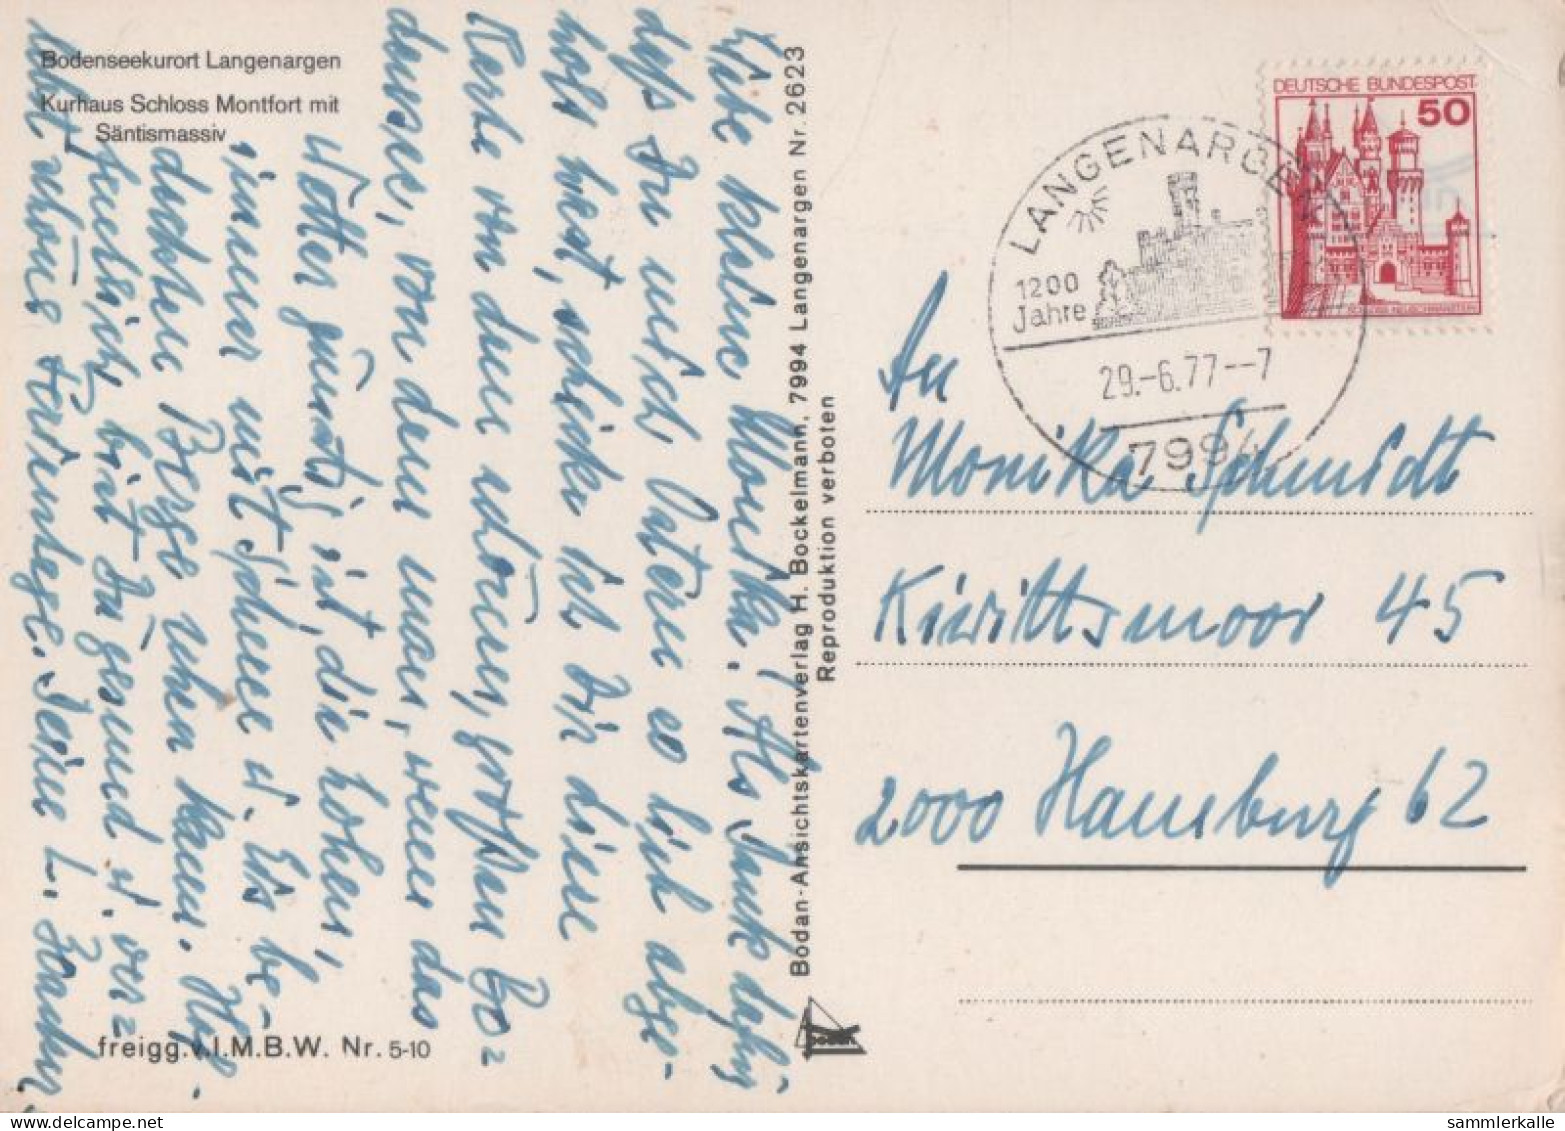 Bodenseekurort Langenargen
Kurhaus Schloss Montfort mit
Säntismassiv
Liebe kleine Monika! Als Dank dafür
daß Du mich Ostern so lieb abge-
holt hast, schicke ich Dir diese
Karte von dem schönen, großen Bo-
densee, von dem man, wenn das
Wetter günstig ist, die hohen,
immer mit Schnee u. Eis be-
deckten Berge sehen kann. Hof-
fentlich bist Du gesund u. ver-
lebst schöne Ferientage. Deine L.
freigg.v.I.M.B.W. Nr. 5-10
Bodan-Ansichtskartenverlag H. Bockelmann, 7994 Langenargen Nr. 2623
Reproduktion verboten
DEUTSCHE BUNDESPOST
50
SCHLOSS NEUSCHWANSTEIN
LANGENARGEN
1200
Jahre
29.-6.77--7
7994
An
Monika Schmidt
Kiwittsmoor 45
2000 Hamburg 62
sammlerkalle